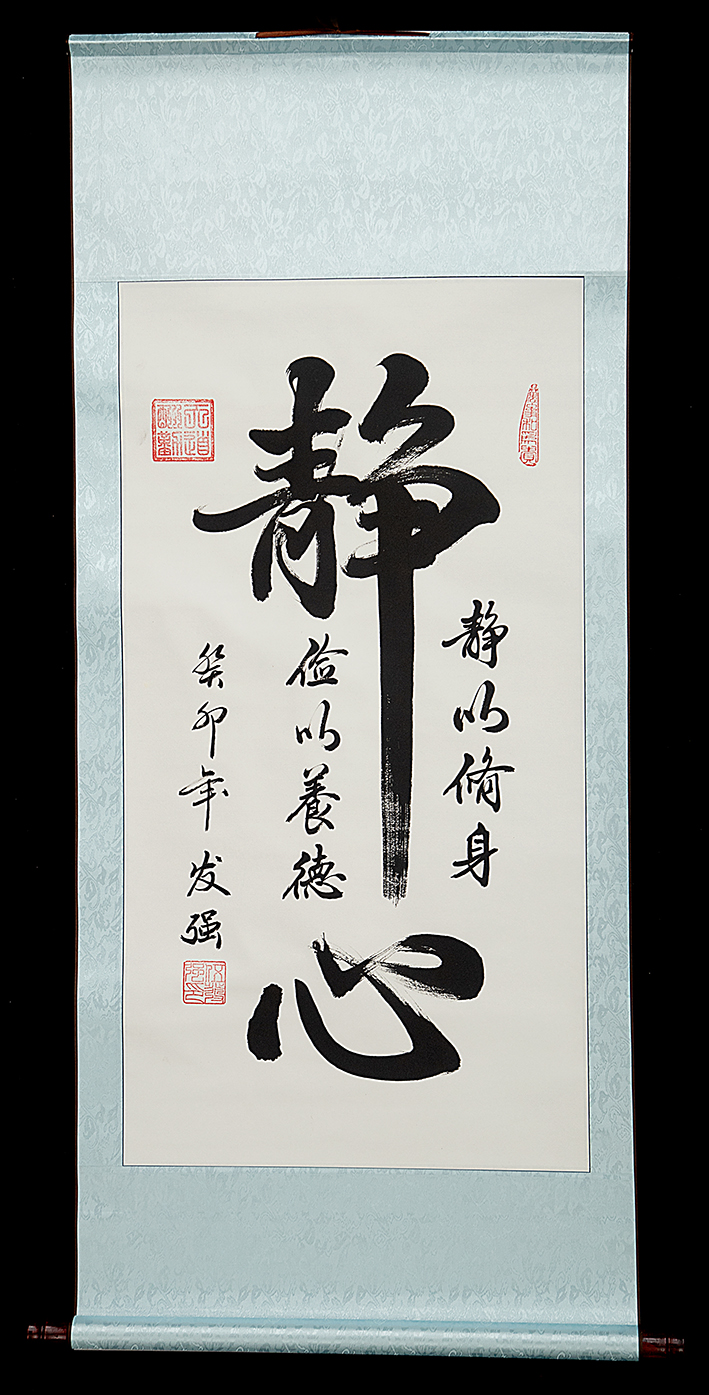 静心
静以脩身
俭以養德
癸卯年发强